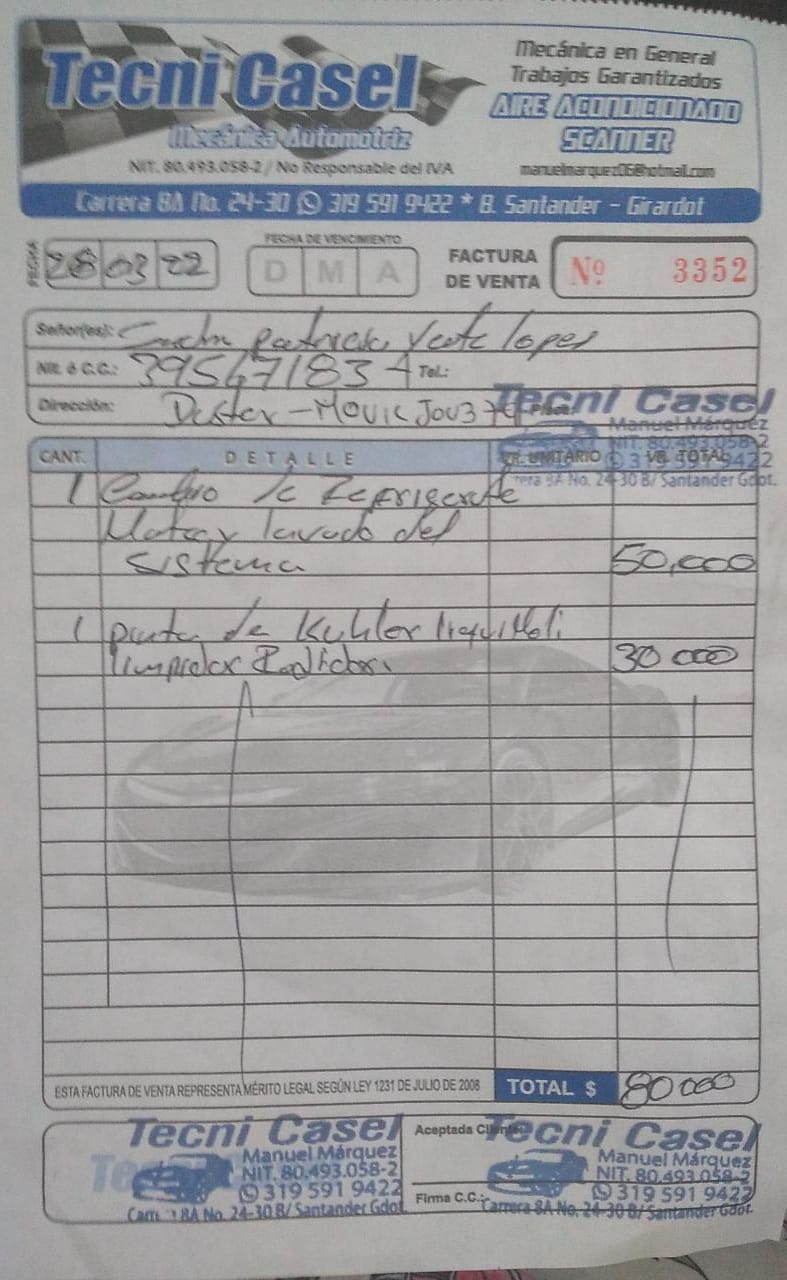 Tecni Casel
Mecánica Automotriz
NIT. 80.493.058-2 / No Responsable del IVA
Mecánica en General
Trabajos Garantizados
AIRE ACONDICIONADO
SCANNER
manuelmarquez06@hotmail.com
Carrera 8A No. 24-30 319 591 9422 * B. Santander - Girardot
FECHA 28 03 22
FECHA DE VENCIMIENTO
D M A
FACTURA
DE VENTA
Nº 3352
Señor(es): Patricia lopes
Nit. ó C.C.: 39567183 Tel.:
Dirección: Duster - JOU
Tecni Casel
Manuel Márquez
NIT. 80.493.058-2
319 591 9422
Carrera 8A No. 24-30 B/ Santander Gdot.
CANT. DETALLE VR. UNITARIO VR. TOTAL
1 Cambio de Refrigerante
lavado del
sistema 50,000
1 de
limpiador Radiador 30 000
ESTA FACTURA DE VENTA REPRESENTA MÉRITO LEGAL SEGÚN LEY 1231 DE JULIO DE 2008 TOTAL $ 80 000
Tecni Casel
Manuel Márquez
NIT. 80.493.058-2
319 591 9422
Carrera 8A No. 24-30 B/ Santander Gdot.
Aceptada Cliente:
Firma C.C.:
Tecni Casel
Manuel Márquez
NIT. 80.493.058-2
319 591 9422
Carrera 8A No. 24-30 B/ Santander Gdot.